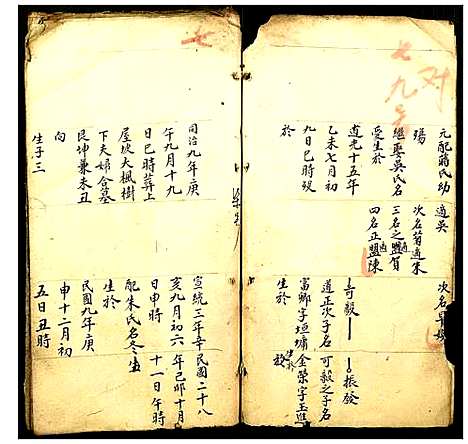 元配蔣氏幼
殤
繼娶吳氏名
受生於
道光十五年
乙未七月初
九日巳時歿
於
適吳
次名菊適朱
三名之適賀
四名正適陳
奇毅
道正次子名
富鄉字垣墉
生於
振發
可毅之子名
金榮字玉進
生於
同治九年庚
午九月十九
日巳時葬上
屋坡大楓樹
下夫婦合墓
艮坤兼未丑
向
生子三
宣統三年辛
亥九月初六
日申時
配朱氏名冬生
生於
民國九年庚
申十二月初
五日丑時
民國二十八
年己卯十月
十一日午時
七
对